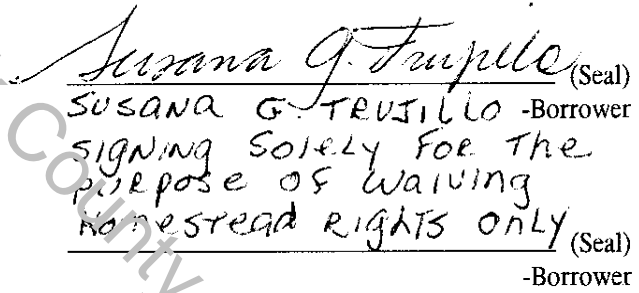 Susana G. Trujillo (Seal)
SUSANA G. TRUJILLO -Borrower
SIGNING SOLELY FOR The
PURPOSE OF WAIVING
HOMESTEAD RIGHTS ONLY (Seal)
-Borrower
County